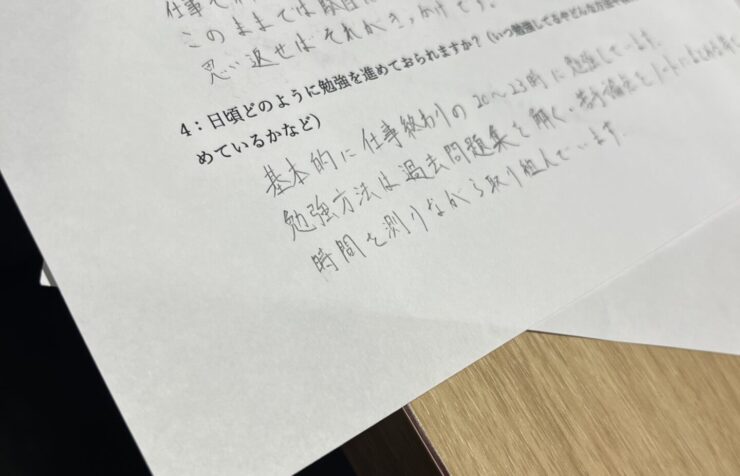 仕事
このままでは駄目
思い返せばそれがきっかけです。
4：日頃どのように勉強を進めておられますか？（いつ勉強してるかどんな方法や
めているかなど）
基本的に仕事終わりの20〜23時に勉強しています。
勉強方法は過去問題集を解く・苦手論点をノートにまとめ
時間を測りながら取り組んでいます。